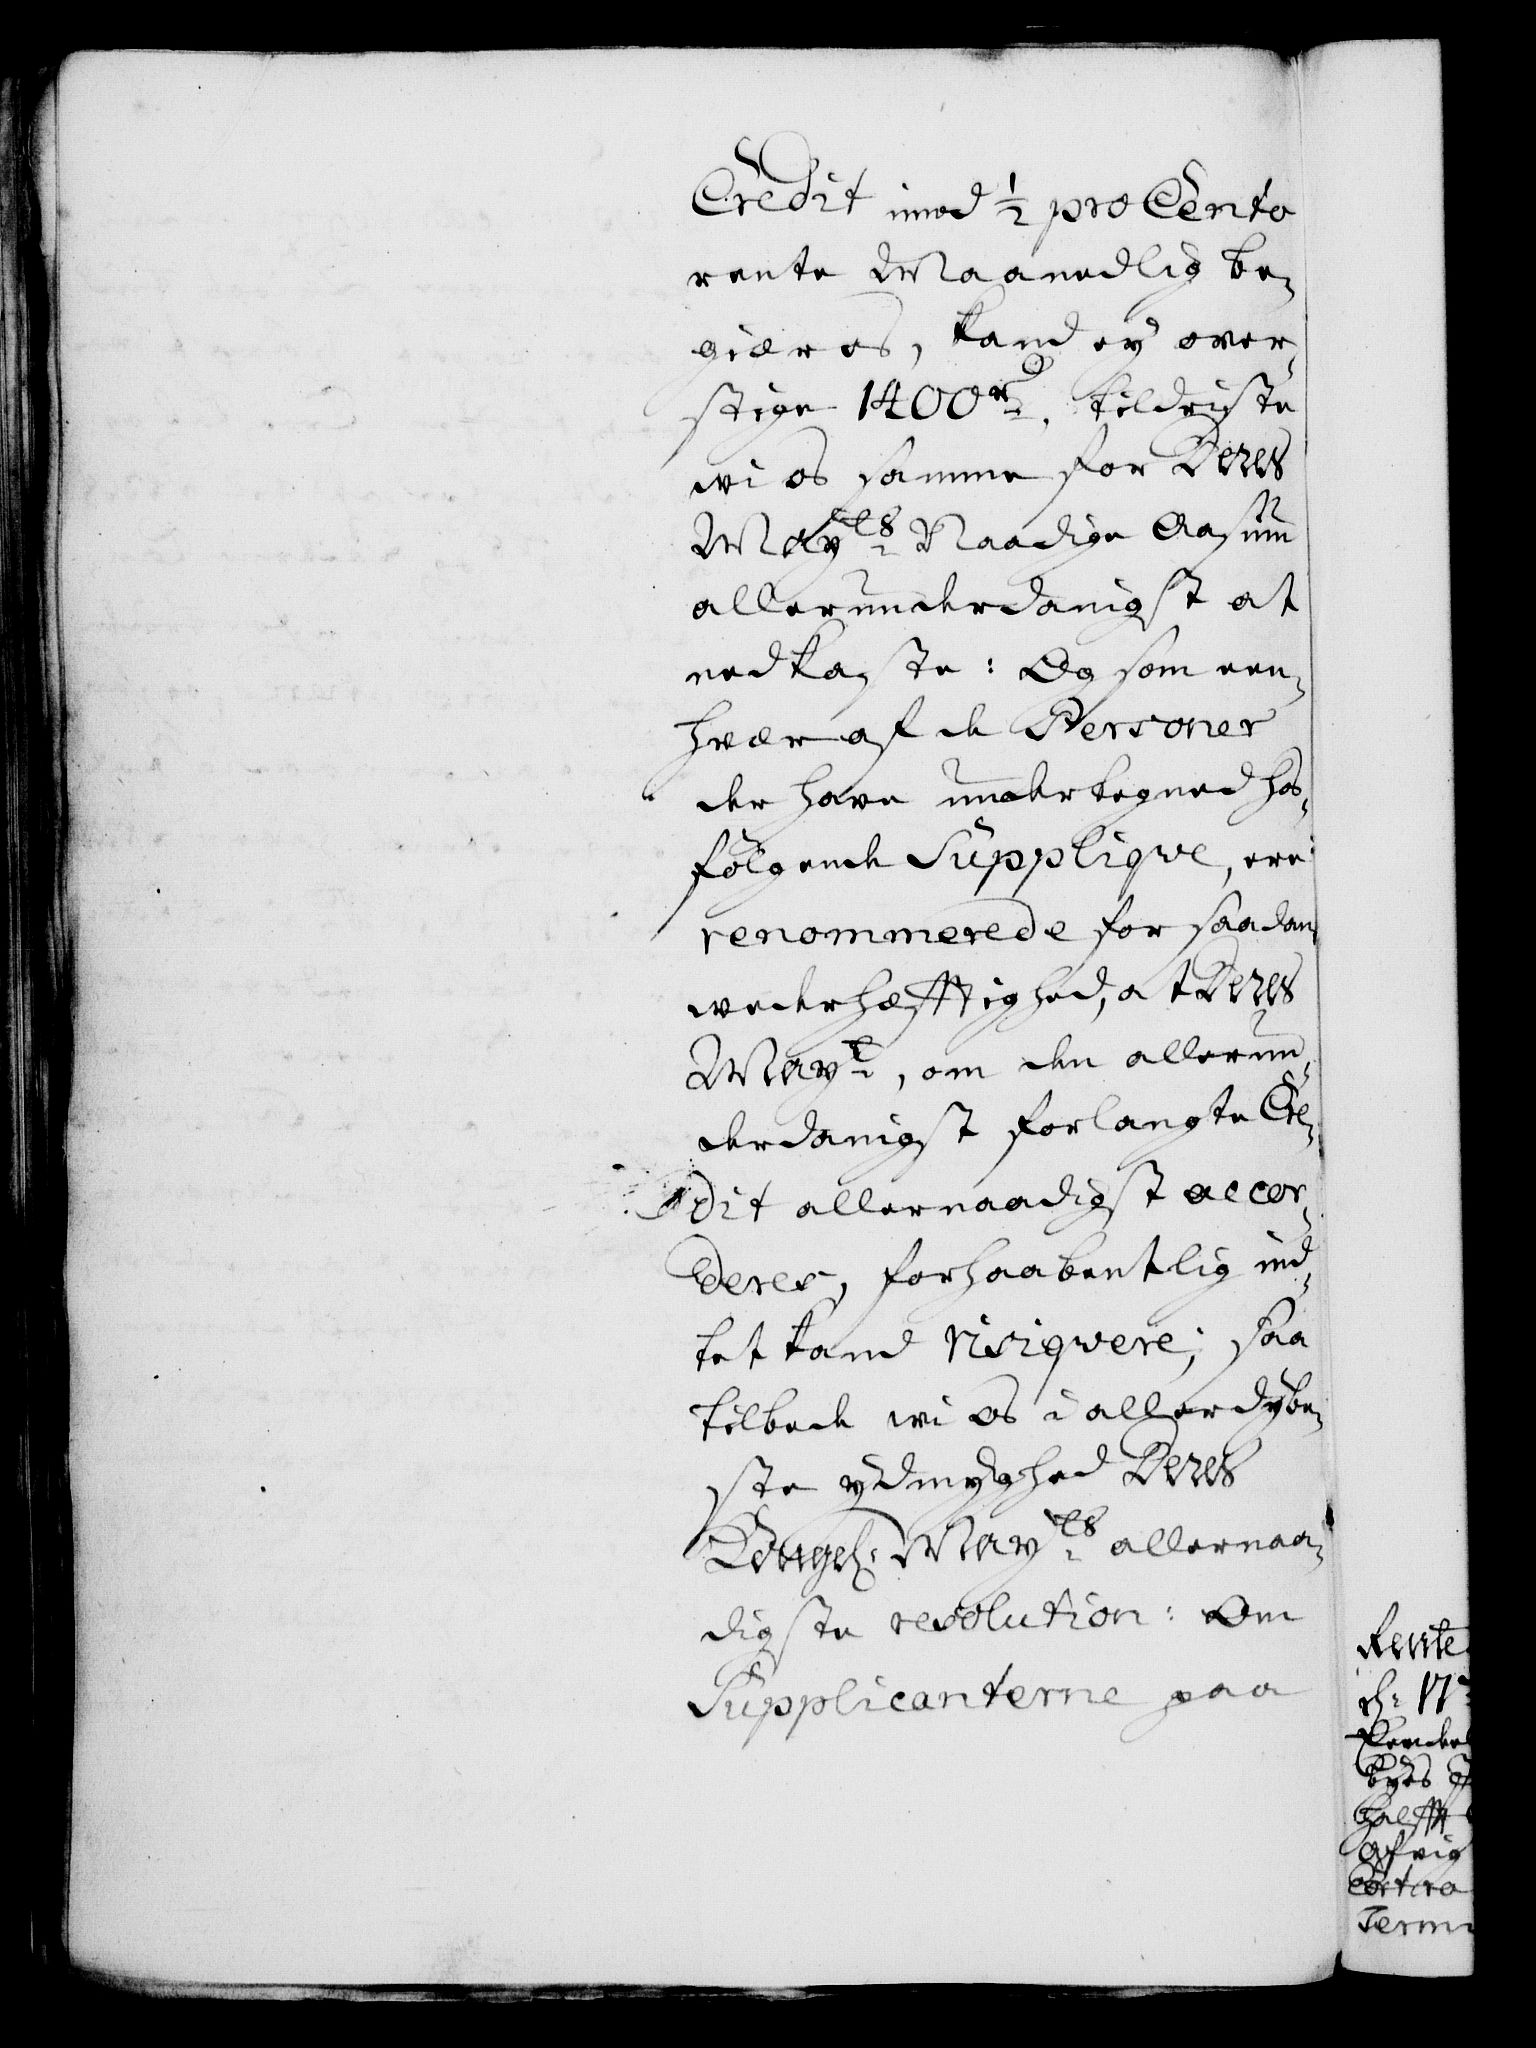 Credit imod ½ pro Cento
rente Maanedlig be-
giæres, kand ey over-
stige 1400 rdr, fordriste
wi os samme for Deres
Mayts Naadige Aasiun
allerunderdanigst at
nedkaste: Og som een-
hver af de Personer
der have undertegned hos-
følgende Supplique, ere
renommerede for saadan
wederhæfftighed, at Deres
Mayt, om den allerun-
derdanigst forlangte Cre-
dit allernaadigst accor-
deres, forhaabentlig ind-
tet kand risiqvere; saa
tilbede wi os i allerdybe-
ste ydmyghed Deres
Kongel: Mayts allernaa-
digste resolution: Om
Supplicanterne paa
Rente
Term